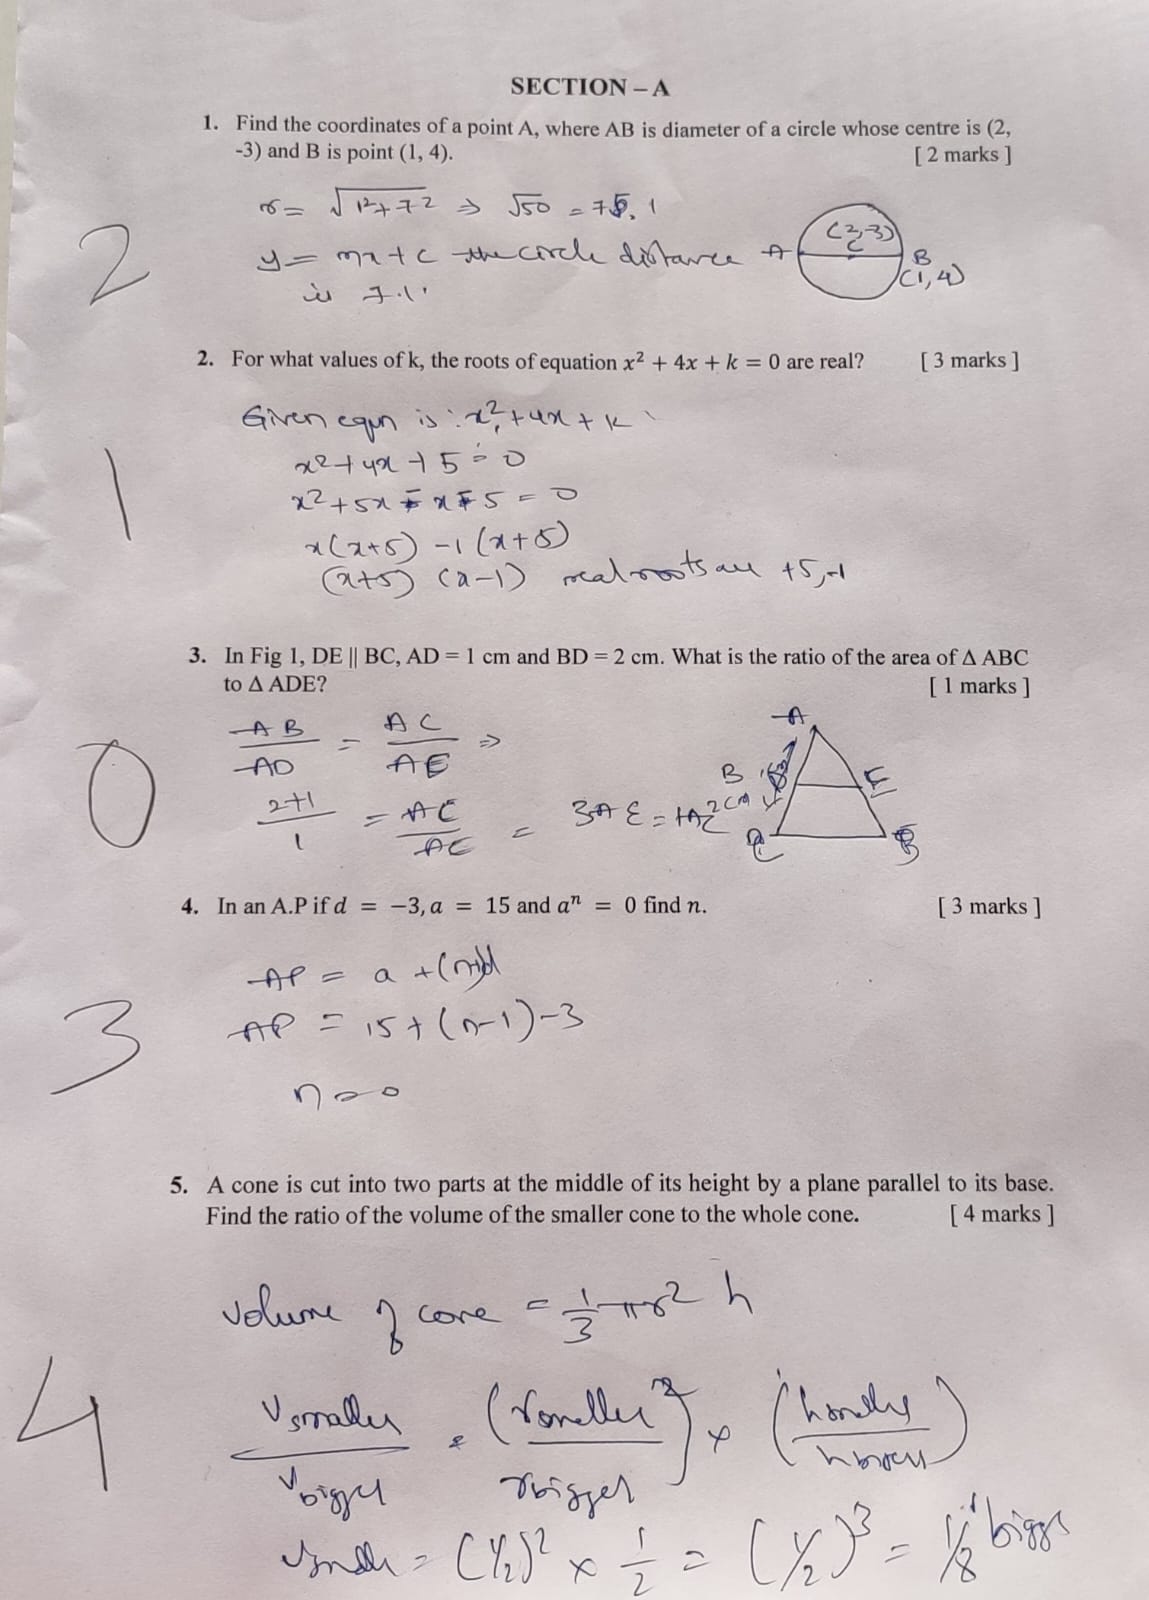 SECTION – A
1. Find the coordinates of a point A, where AB is diameter of a circle whose centre is (2,
-3) and B is point (1, 4). [ 2 marks ]
r = √1²+7² ⇒ √50 = 7.1
2
y = mx + c the circle distance
is 7.1.
A (2,-3) C B (1, 4)
2. For what values of k, the roots of equation x² + 4x + k = 0 are real? [ 3 marks ]
Given equn is : x² + 4x + k
x² + 4x + 5 = 0
1
x² + 5x - x - 5 = 0
x(x+5) -1 (x+5)
(x+5) (x-1) real roots are +5,-1
3. In Fig 1, DE || BC, AD = 1 cm and BD = 2 cm. What is the ratio of the area of Δ ABC
to Δ ADE? [ 1 marks ]
A
AB/AD = AC/AE ⇒
0
B E
2+1/1 = AC/AE = 3AE = 1AC
2cm
C B
4. In an A.P if d = −3, a = 15 and aⁿ = 0 find n. [ 3 marks ]
AP = a + (n-1)d
3
AP = 15 + (n-1) -3
n = 0
5. A cone is cut into two parts at the middle of its height by a plane parallel to its base.
Find the ratio of the volume of the smaller cone to the whole cone. [ 4 marks ]
Volume of cone = 1/3 πr² h
4
V smaller / V bigger = (r smaller / r bigger)² × (h smaller / h )
V = (1/2)² × 1/2 = (1/2)³ = 1/8 V bigger